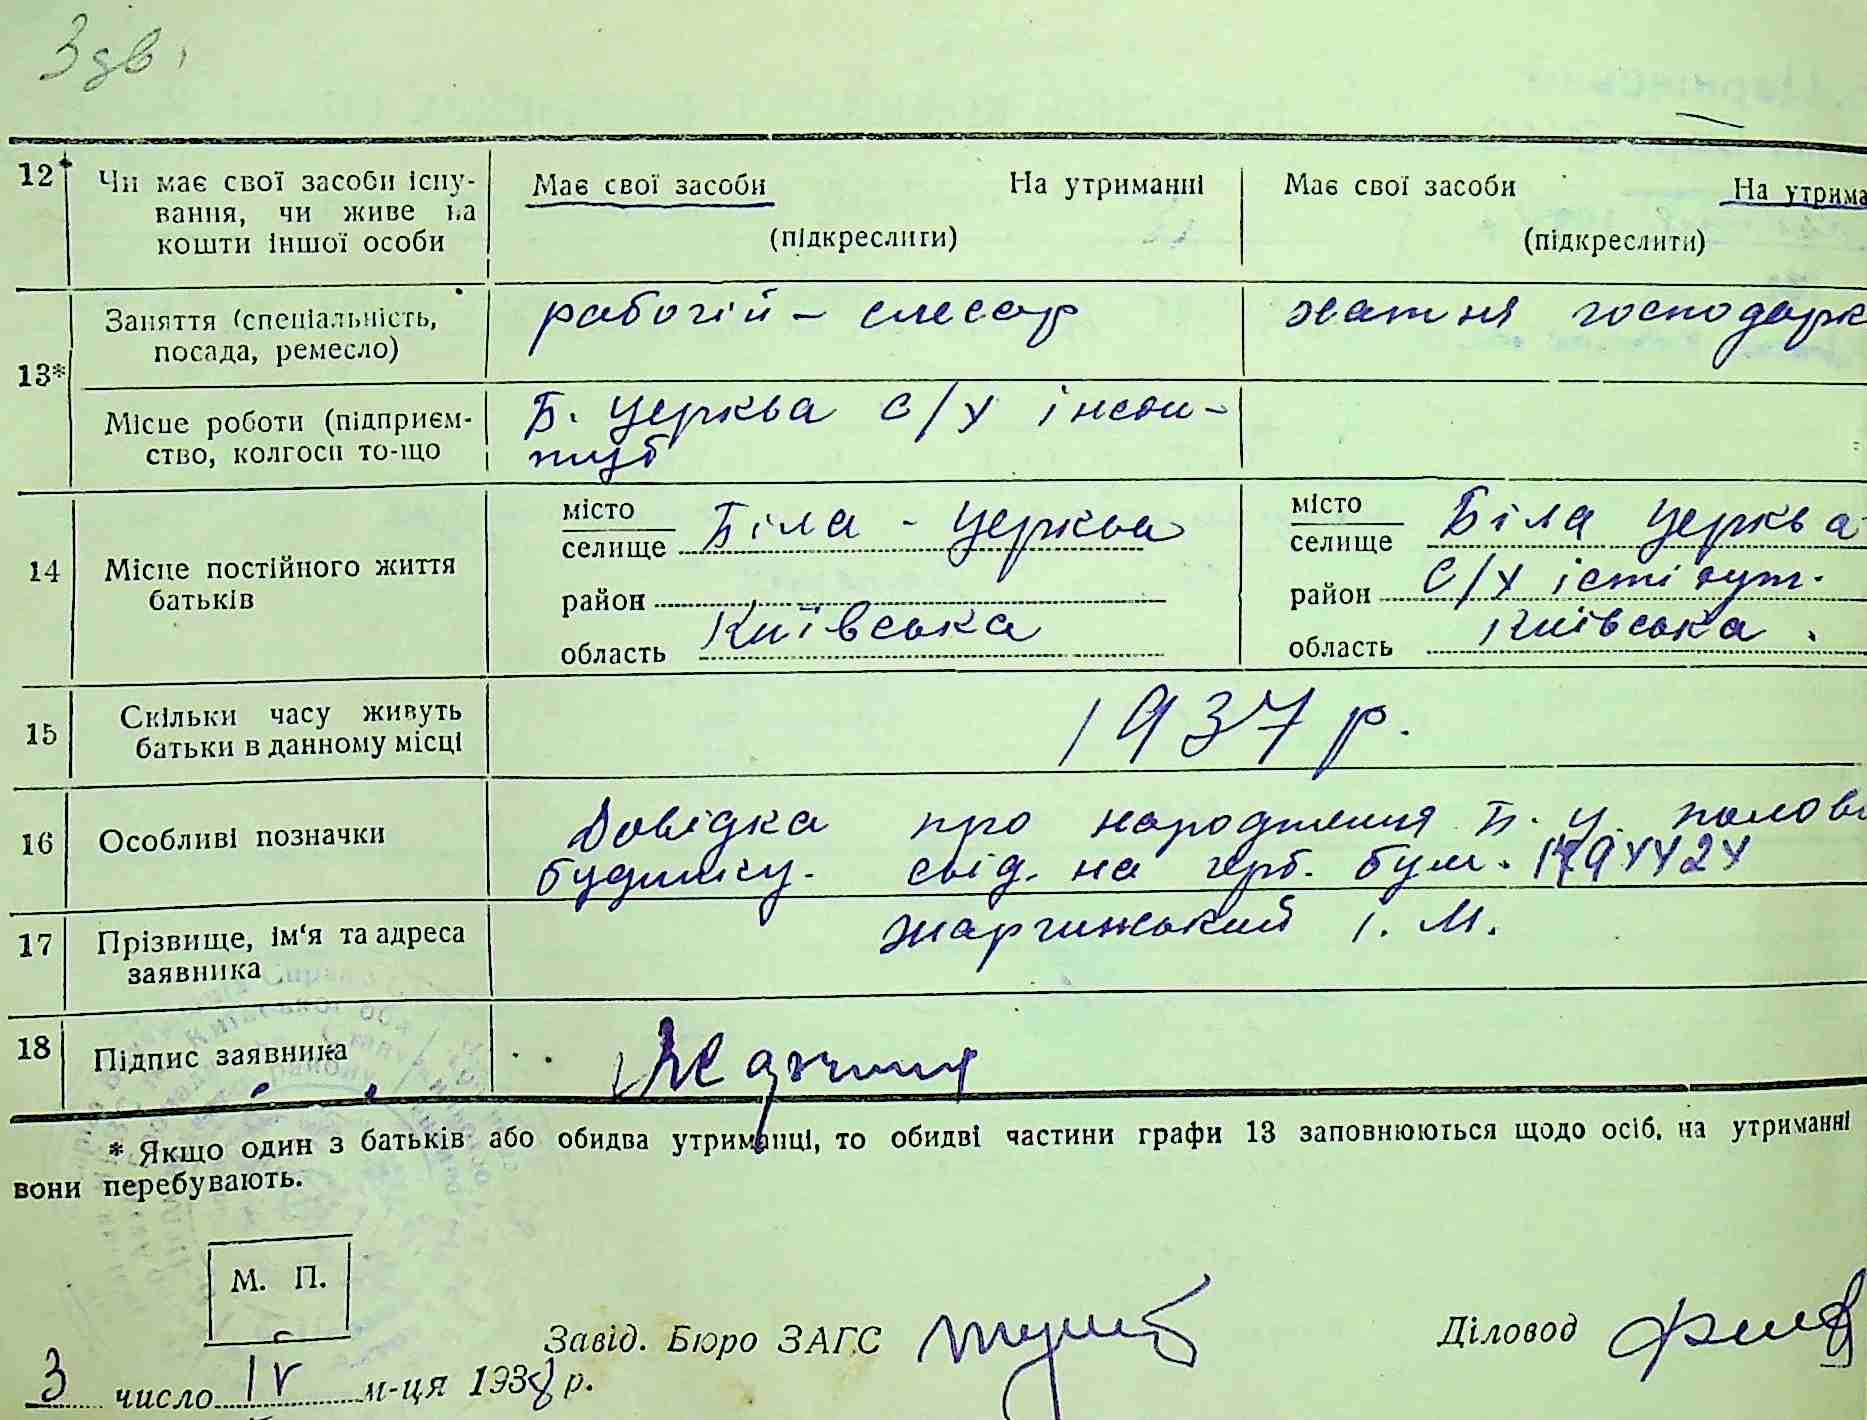 3 дв.
12* Чи має свої засоби існу- Має свої засоби На утриманні Має свої засоби На утрима
вання, чи живе на
кошти іншої особи (підкреслити) (підкреслити)
13* Заняття (спеціальність, рабочій – слесар хатня господарк
посада, ремесло)
Місце роботи (підприєм- Б. Церква С/Х інсти-
ство, колгосп то-що тут
14 Місце постійного життя батьків
місто Біла - Церква місто Біла Церква
селище селище
район район С/Х істітут.
область Київська область Київська.
15 Скільки часу живуть 1937 р.
батьки в данному місці
16 Особливі позначки Довідка про народження Б. Ц. полов
будинку. свід. на герб. бум.
17 Прізвище, ім'я та адреса Жаргинський І. М.
заявника
18 Підпис заявника
* Якщо один з батьків або обидва утриманці, то обидві частини графи 13 заповнюються щодо осіб, на утриманні
вони перебувають.
М. П.
Завід. Бюро ЗАГС Діловод
3 число IV м-ця 1938 р.